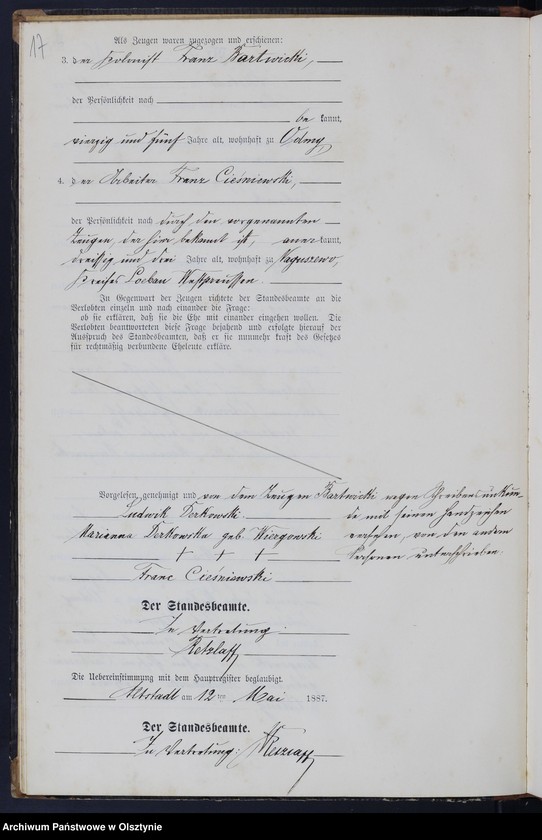 17
Als Zeugen waren zugezogen und erschienen:
3. der Kolonist Franz Bartwicki,
der Persönlichkeit nach
bekannt,
vierzig und fünf Jahre alt, wohnhaft zu Odmy,
4. der Arbeiter Franz Cieśniewski,
der Persönlichkeit nach durch den vorgenannten
Zeugen, der hier bekannt ist, anerkannt,
dreißig und drei Jahre alt, wohnhaft zu Naguszewo,
Kreises Loebau Westpreussen
In Gegenwart der Zeugen richtete der Standesbeamte an die
Verlobten einzeln und nach einander die Frage:
ob sie erklären, daß sie die Ehe mit einander eingehen wollen. Die
Verlobten beantworteten diese Frage bejahend und erfolgte hierauf der
Ausspruch des Standesbeamten, daß er sie nunmehr kraft des Gesetzes
für rechtmäßig verbundene Eheleute erkläre.
Vorgelesen, genehmigt und von dem Zeugen Bartwicki wegen Schreibensunkun-
de mit seinen Handzeichen
versehen, von den andern
Personen unterschrieben.
Ludwik Derkowski
Marianna Derkowska geb. Wiergowski
+ + +
Franc Cieśniewski
Der Standesbeamte.
In Vertretung:
Retzlaff
Die Uebereinstimmung mit dem Hauptregister beglaubigt.
Altstadt am 12ten Mai 1887.
Der Standesbeamte.
In Vertretung: Retzlaff
Archiwum Państwowe w Olsztynie